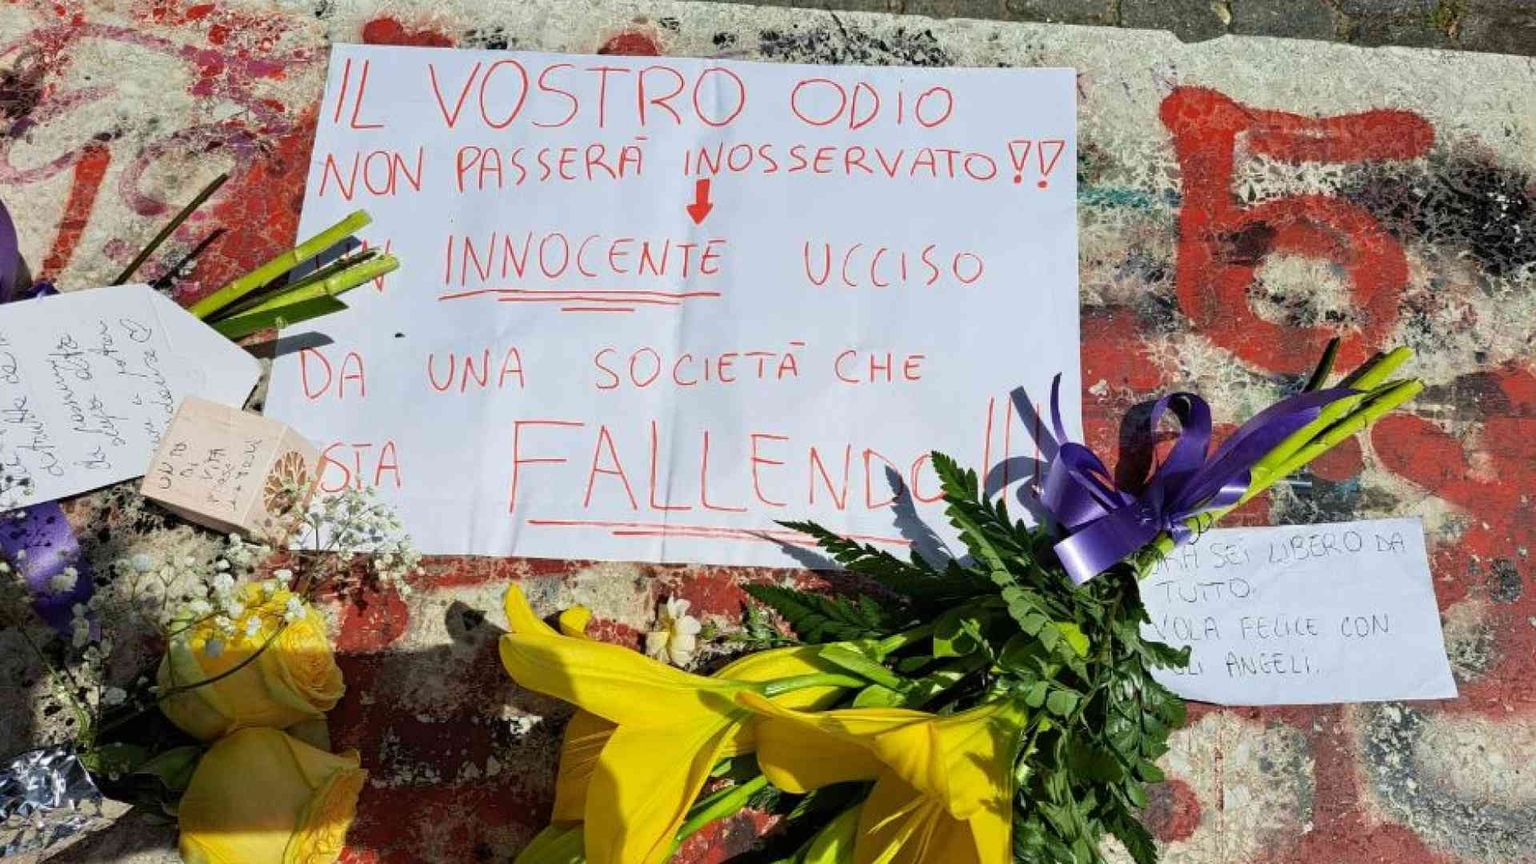 IL VOSTRO ODIO
NON PASSERÀ INOSSERVATO!!
INNOCENTE UCCISO
DA UNA SOCIETÀ CHE
STA FALLENDO!!!
SEI LIBERO DA
TUTTO.
VOLA FELICE CON
GLI ANGELI.
5